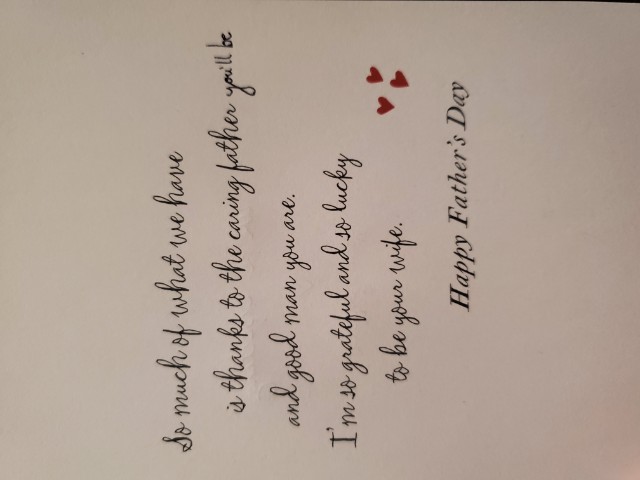 So much of what we have
is thanks to the caring father you'll be
and good man you are.
I'm so grateful and so lucky
to be your wife.
Happy Father's Day